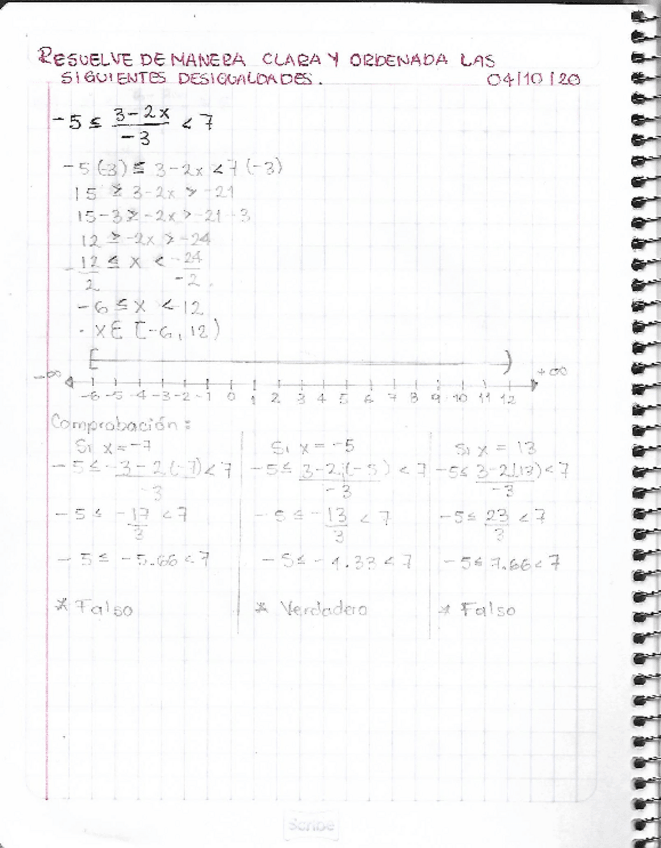 RESUELVE DE MANERA CLARA Y ORDENADA LAS
SIGUIENTES DESIGUALDADES. 04/10/20
-5 ≤ (3-2x)/-3 < 7
-5(-3) ≤ 3-2x < 7(-3)
15 ≥ 3-2x > -21
15-3 ≥ -2x > -21-3
12 ≥ -2x > -24
-12/2 ≤ x < -24/-2.
-6 ≤ x < 12
· x ∈ [-6, 12)
[ )
-∞ +∞
-6 -5 -4 -3 -2 -1 0 1 2 3 4 5 6 7 8 9 10 11 12
Comprobación:
Si x = -7
-5 ≤ -3-2(-7)/-3 < 7
-5 ≤ -17/3 < 7
-5 ≤ -5.66 < 7
* Falso
Si x = -5
-5 ≤ 3-2(-5)/-3 < 7
-5 ≤ -13/3 < 7
-5 ≤ -4.33 < 7
* Verdadero
Si x = 13
-5 ≤ 3-2(13)/-3 < 7
-5 ≤ 23/3 < 7
-5 ≤ 7.66 < 7
* Falso
Scribe